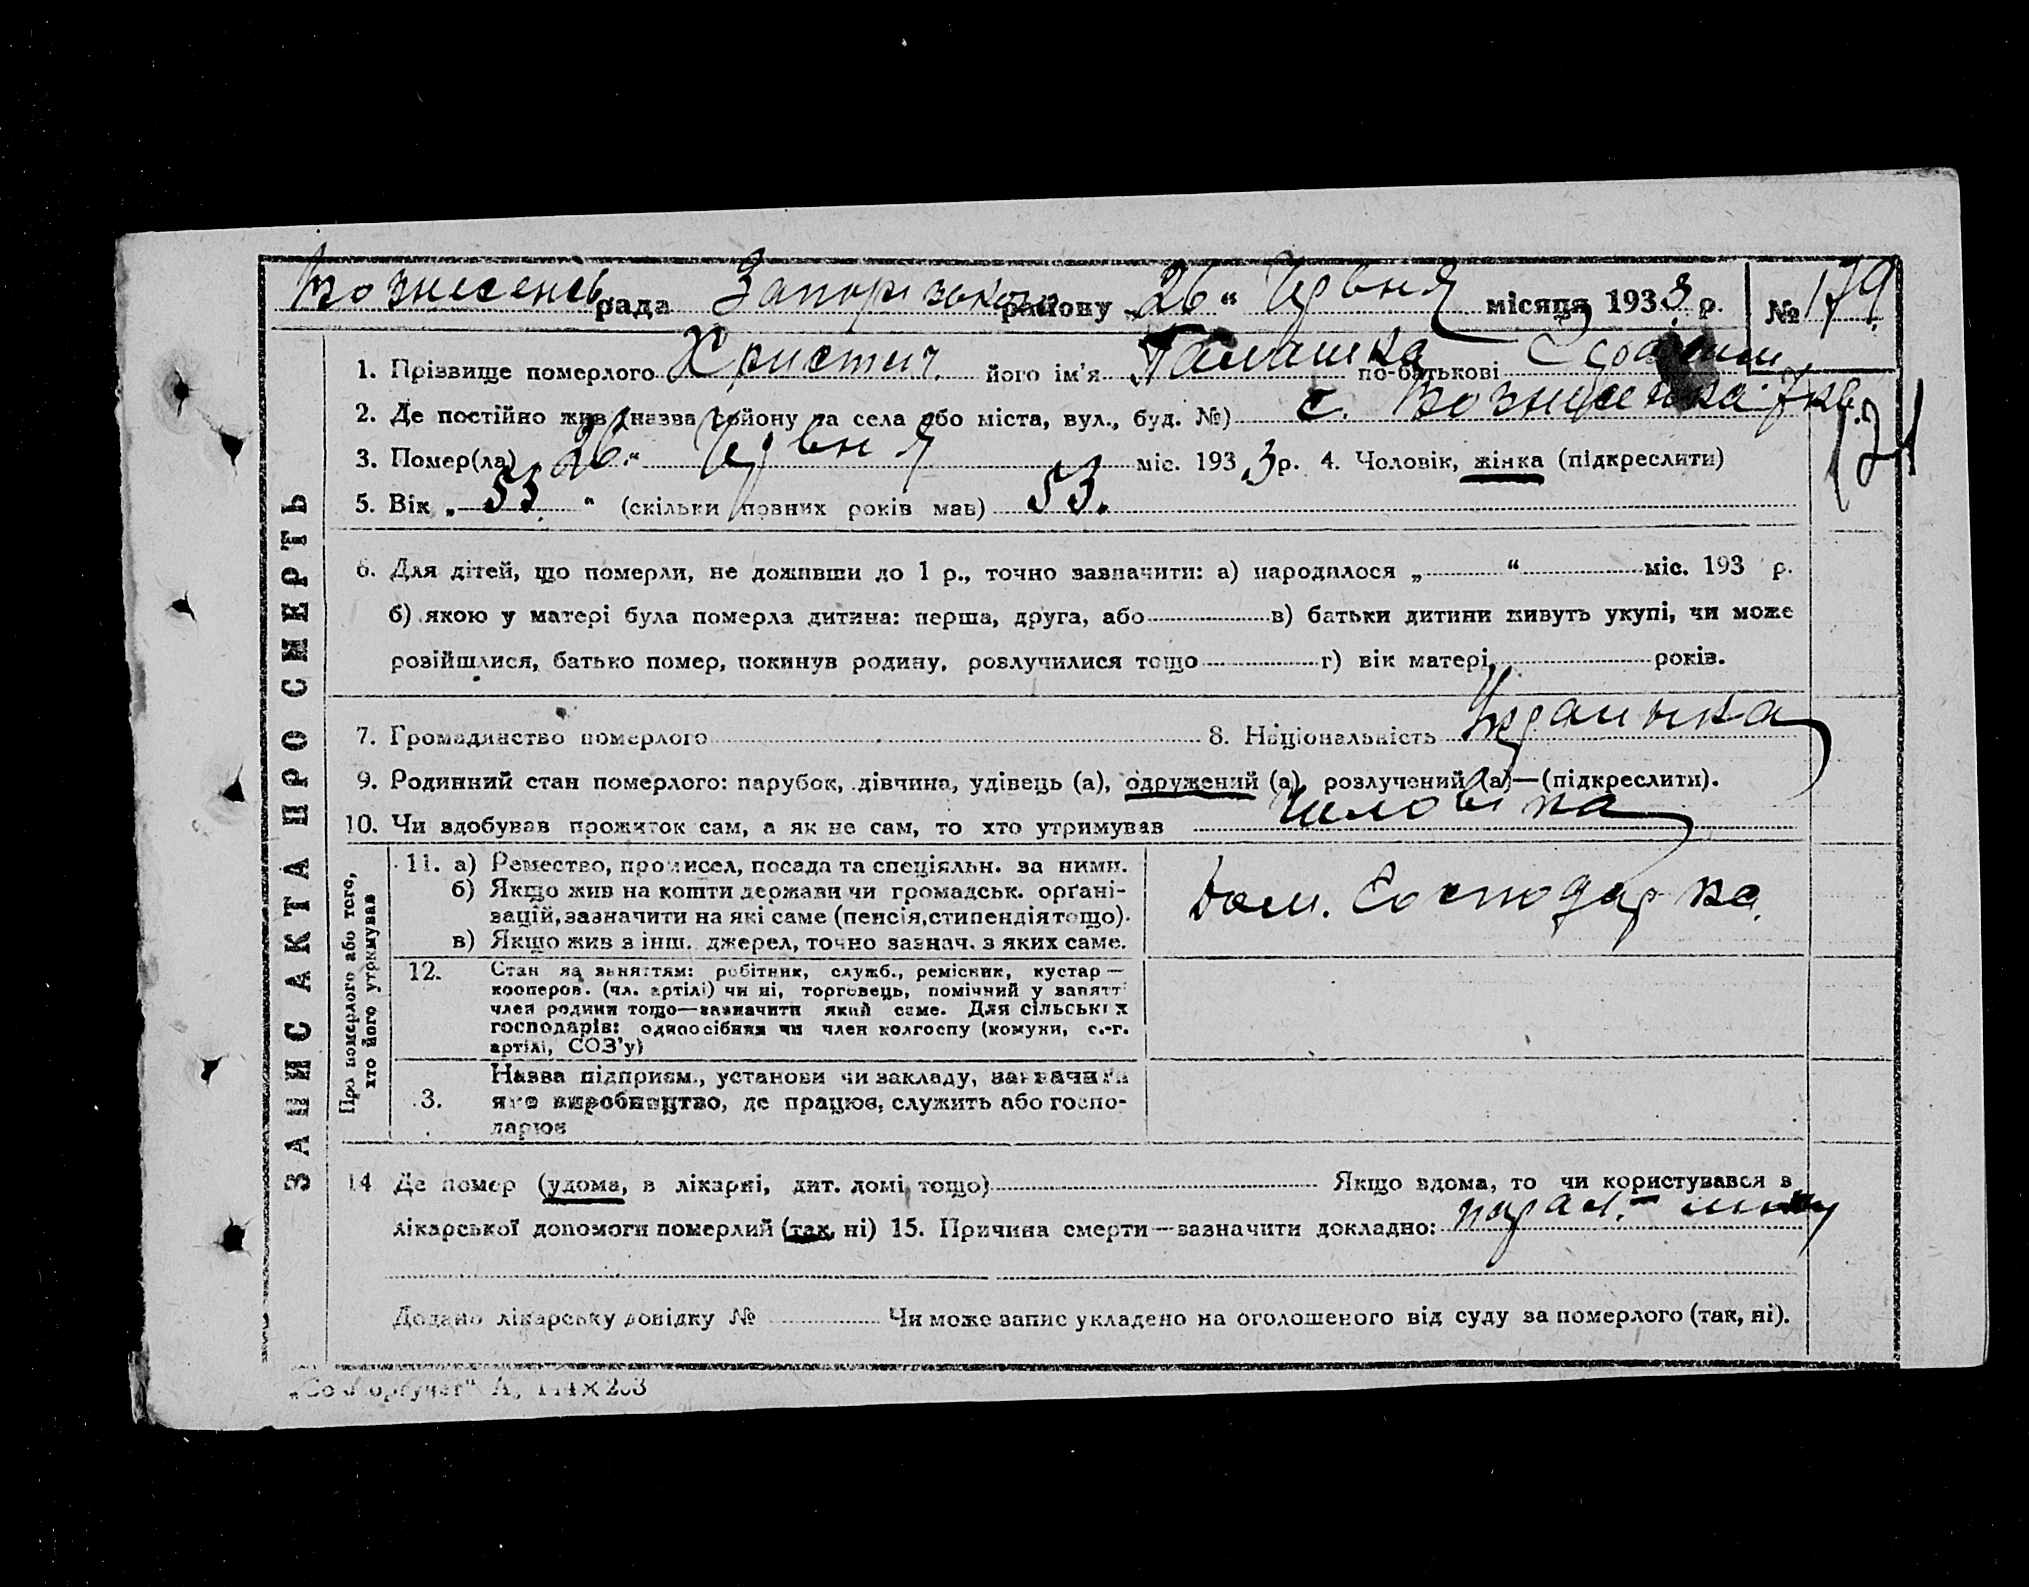 Вознесенсь рада Запорізького району „26“ Червня місяця 1933 р. № 179
1. Прізвище померлого Христич. його ім'я по-батькові
2. Де постійно жив (назва району та села або міста, вул., буд. №) с. Вознесенка 7 кв.
3. Помер(ла) „26“ Червня міс. 1933 р. 4. Чоловік, жінка (підкреслити)
121
5. Вік „53“ (скільки повних років мав) 53.
6. Для дітей, що померли, не доживши до 1 р., точно зазначити: а) народилося „ “ міс. 193 р.
б) якою у матері була померла дитина: перша, друга, або в) батьки дитини живуть укупі, чи може
розійшлися, батько помер, покинув родину, розлучилися тощо г) вік матері, років.
7. Громадянство померлого 8. Національність Українка
9. Родинний стан померлого: парубок, дівчина, удівець (а), одружений (а), розлучений (а)—(підкреслити).
10. Чи здобував прожиток сам, а як не сам, то хто утримував Чоловіка
ЗАПИС АКТА ПРО СМЕРТЬ
Про померлого або того,
хто його утримував
11. а) Ремество, промисел, посада та спеціяльн. за ними.
б) Якщо жив на кошти держави чи громадськ. орґані-
зацій, зазначити на які саме (пенсія, стипендія тощо).
в) Якщо жив з інш. джерел, точно зазнач. з яких саме.
Дом. Господарка.
12. Стан за заняттям: робітник, служб., ремісник, кустар—
кооперов. (чл. артілі) чи ні, торговець, помічний у занятті
член родини тощо—зазначити який саме. Для сільських
господарів: одноосібник чи член колгоспу (комуни, с.-г.
артілі, СОЗ'у)
Назва підприєм., установи чи закладу, зазначити
3. яке виробництво, де працює, служить або госпо-
дарює
14 Де помер (удома, в лікарні, дит. домі, тощо) Якщо вдома, то чи користувався з
лікарської допомоги померлий (так, ні) 15. Причина смерти—зазначити докладно:
Додано лікарську довідку № Чи може запис укладено на оголошеного від суду за померлого (так, ні).
А, 144×203